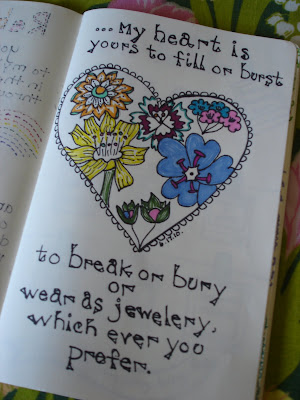 ... My heart is
yours to fill or burst
to break or bury
or
wear as jewelery,
which ever you
prefer.